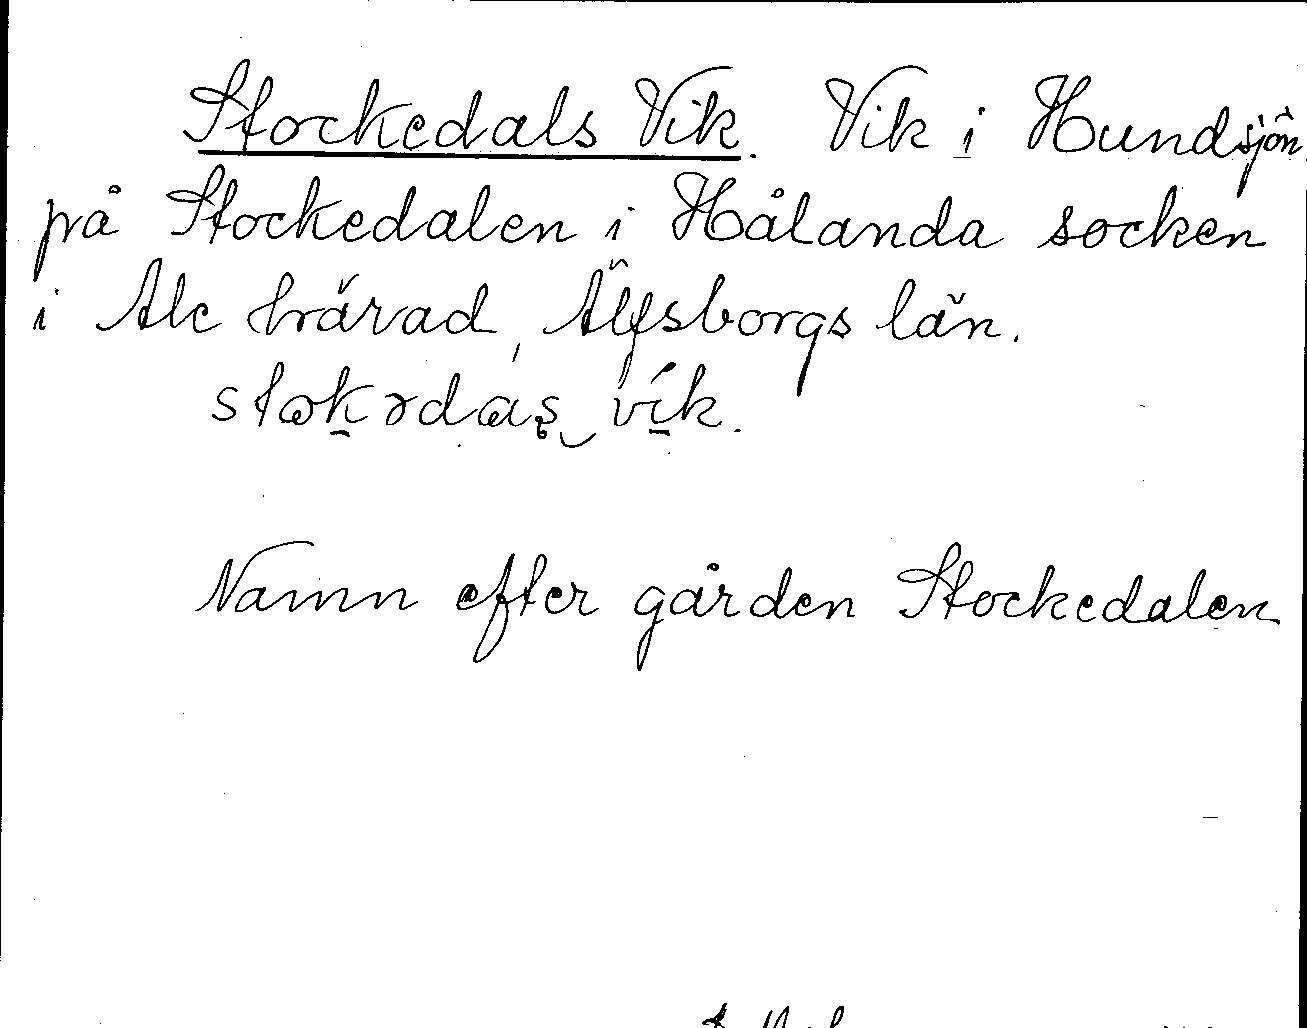 Stockedals Vik. Vik i Hundsjön
på Stockedalen i Hålanda socken
i Ale härad, Älfsborgs län.
stokədas vik.
Namn efter gården Stockedalen